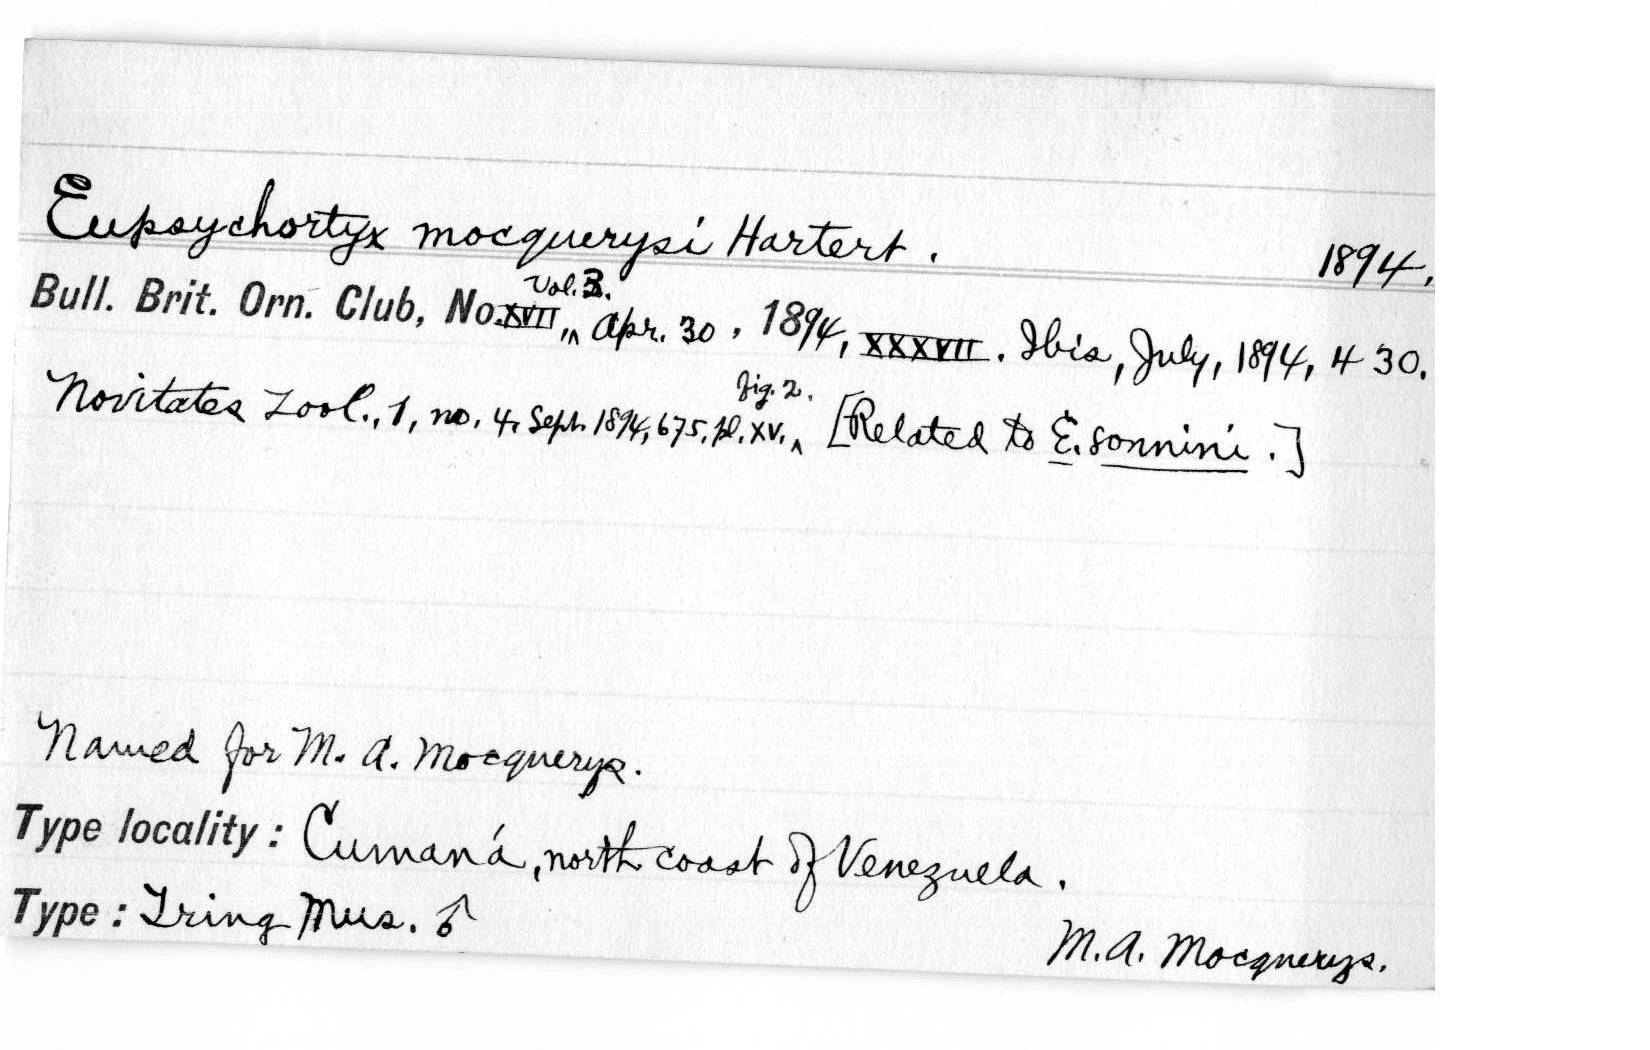 Eupsychortyx mocquerysi Hartert. 1894.
Bull. Brit. Orn. Club, No. XVII, Vol. 3. Apr. 30, 1894, XXXVII. Ibis, July, 1894, 430.
Novitates Zool., 1, no. 4, Sept. 1894, 675, pl. XV, fig. 2. [Related to E. sonnini.]
Named for M. A. Mocquerys.
Type locality: Cumaná, north coast of Venezuela.
Type: Tring Mus. ♂
M. A. Mocquerys.